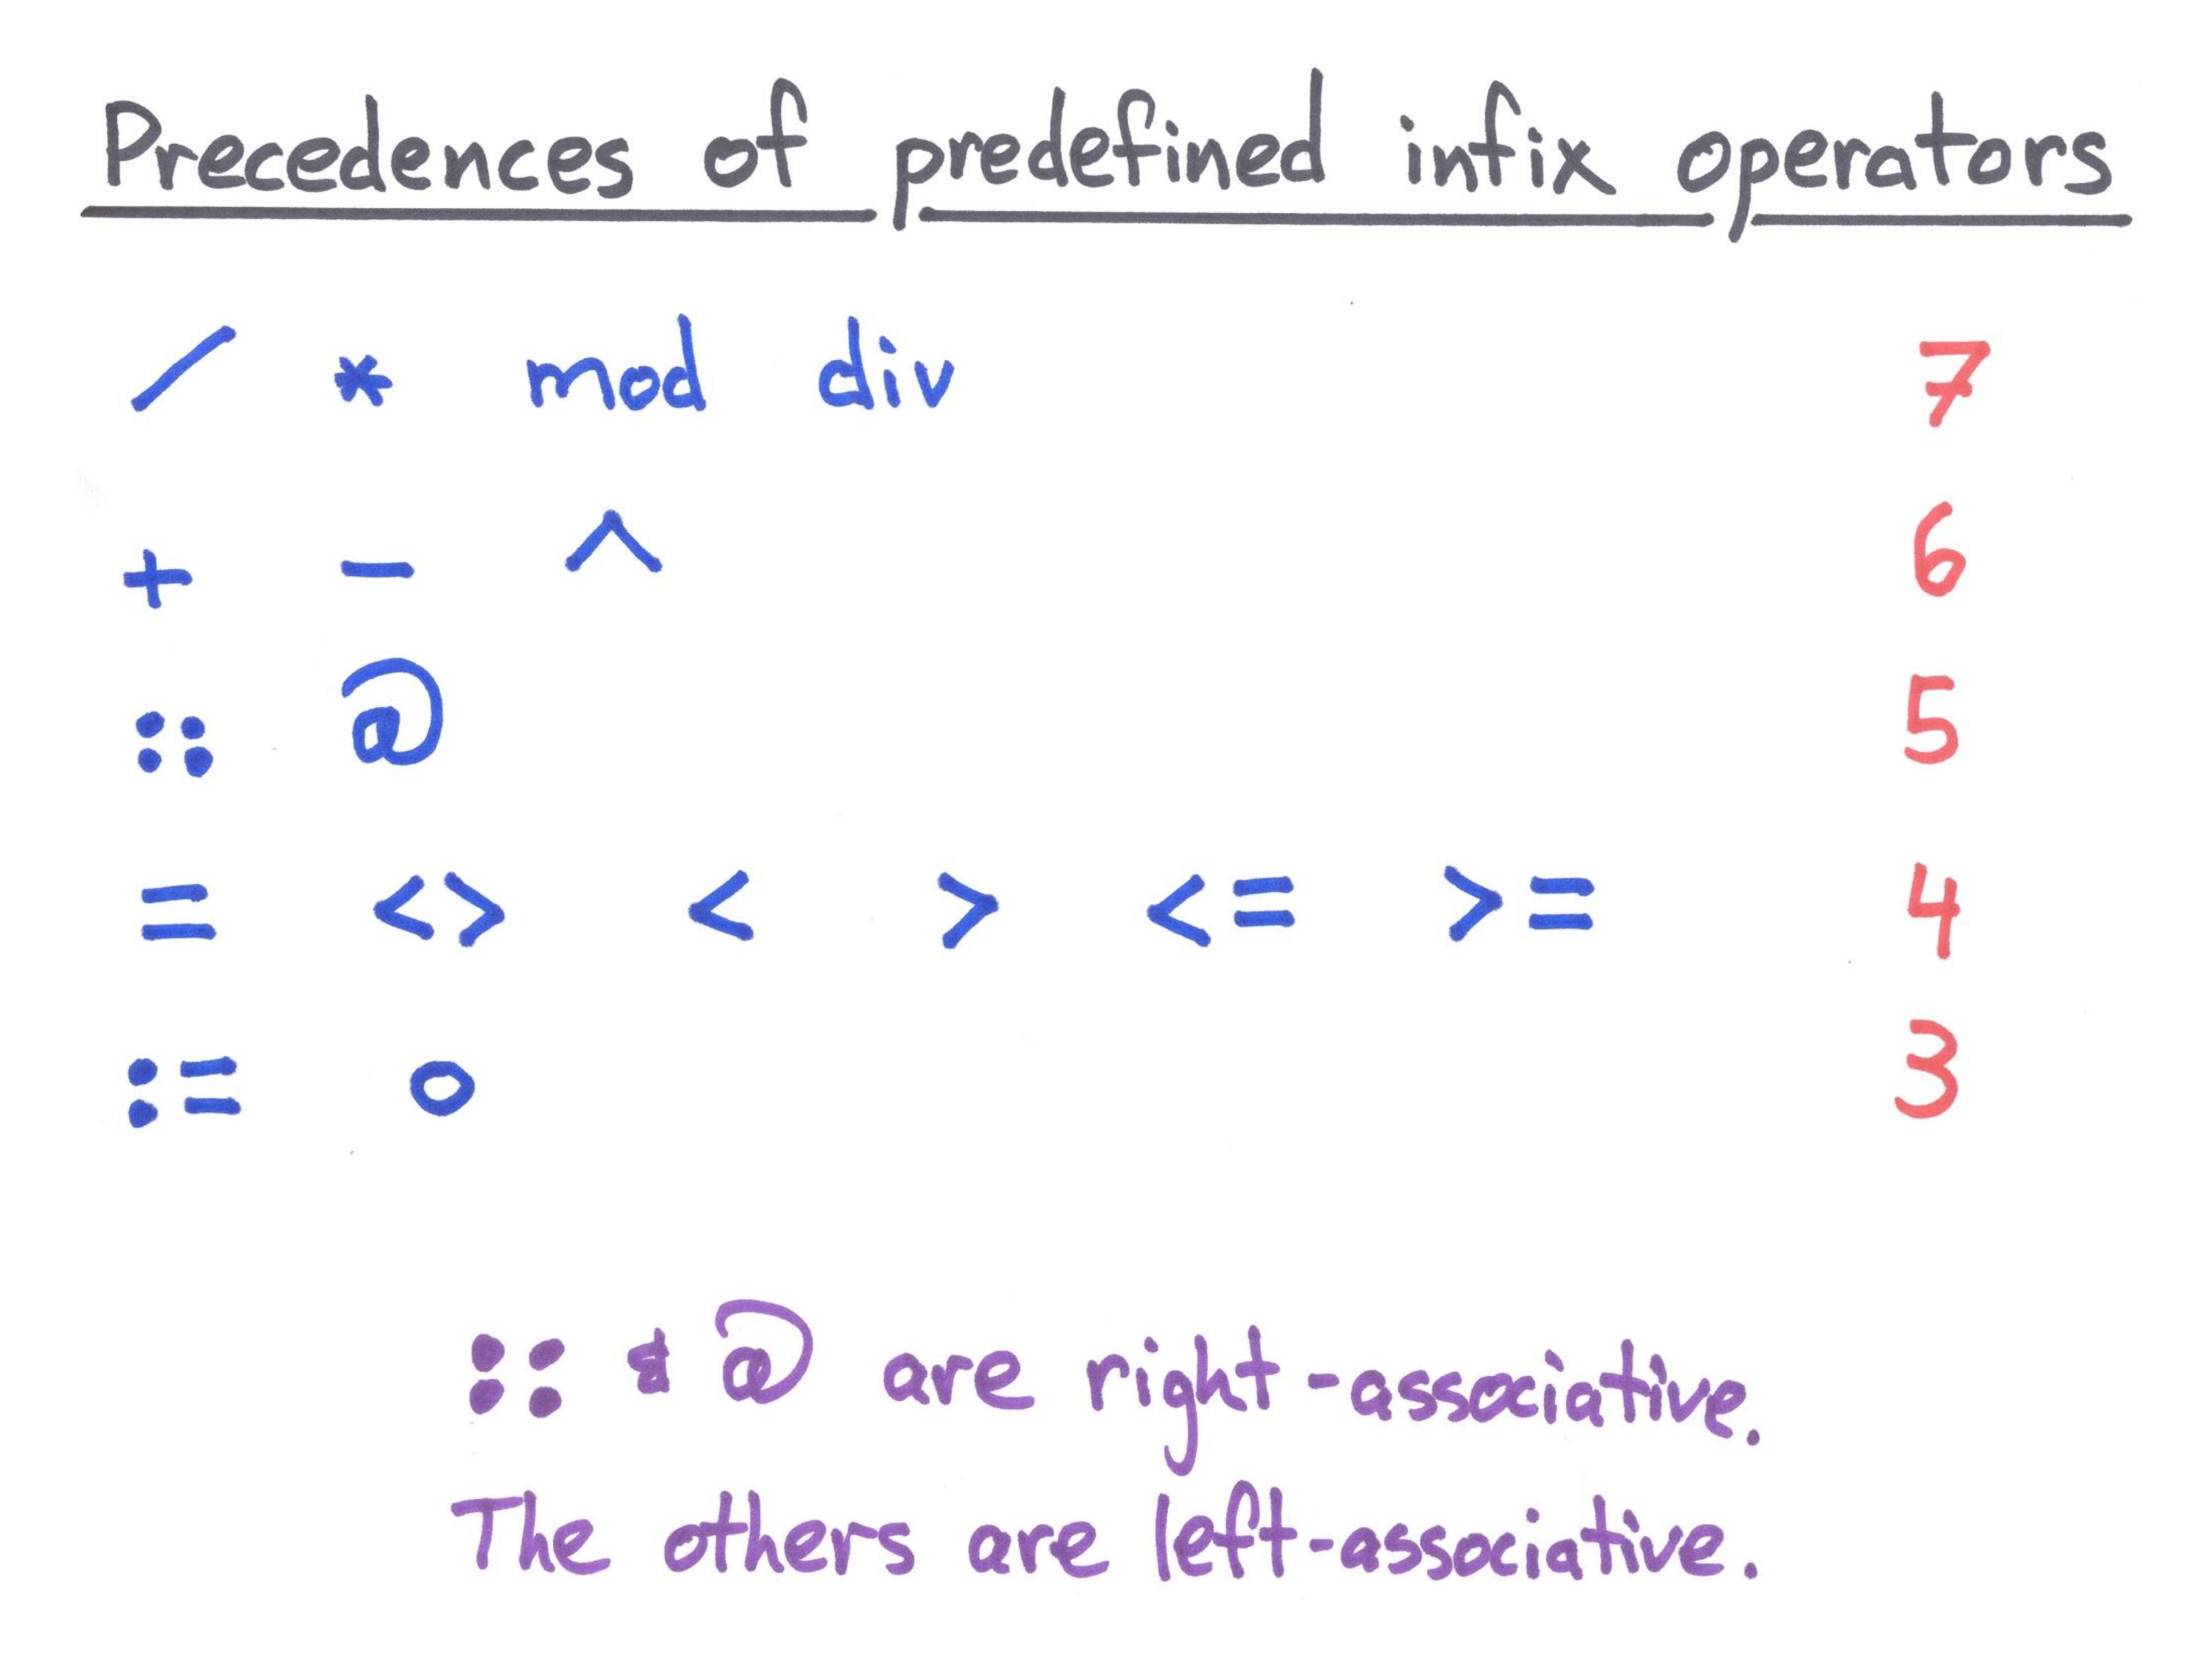 Precedences of predefined infix operators
/ * mod div 7
+ - ^ 6
:: @ 5
= <> < > <= >= 4
:= o 3
:: & @ are right-associative.
The others are left-associative.